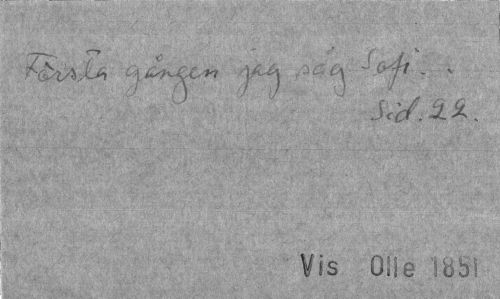 Första gången jag såg Sofi. .
Sid. 22.
Vis Olle 1851